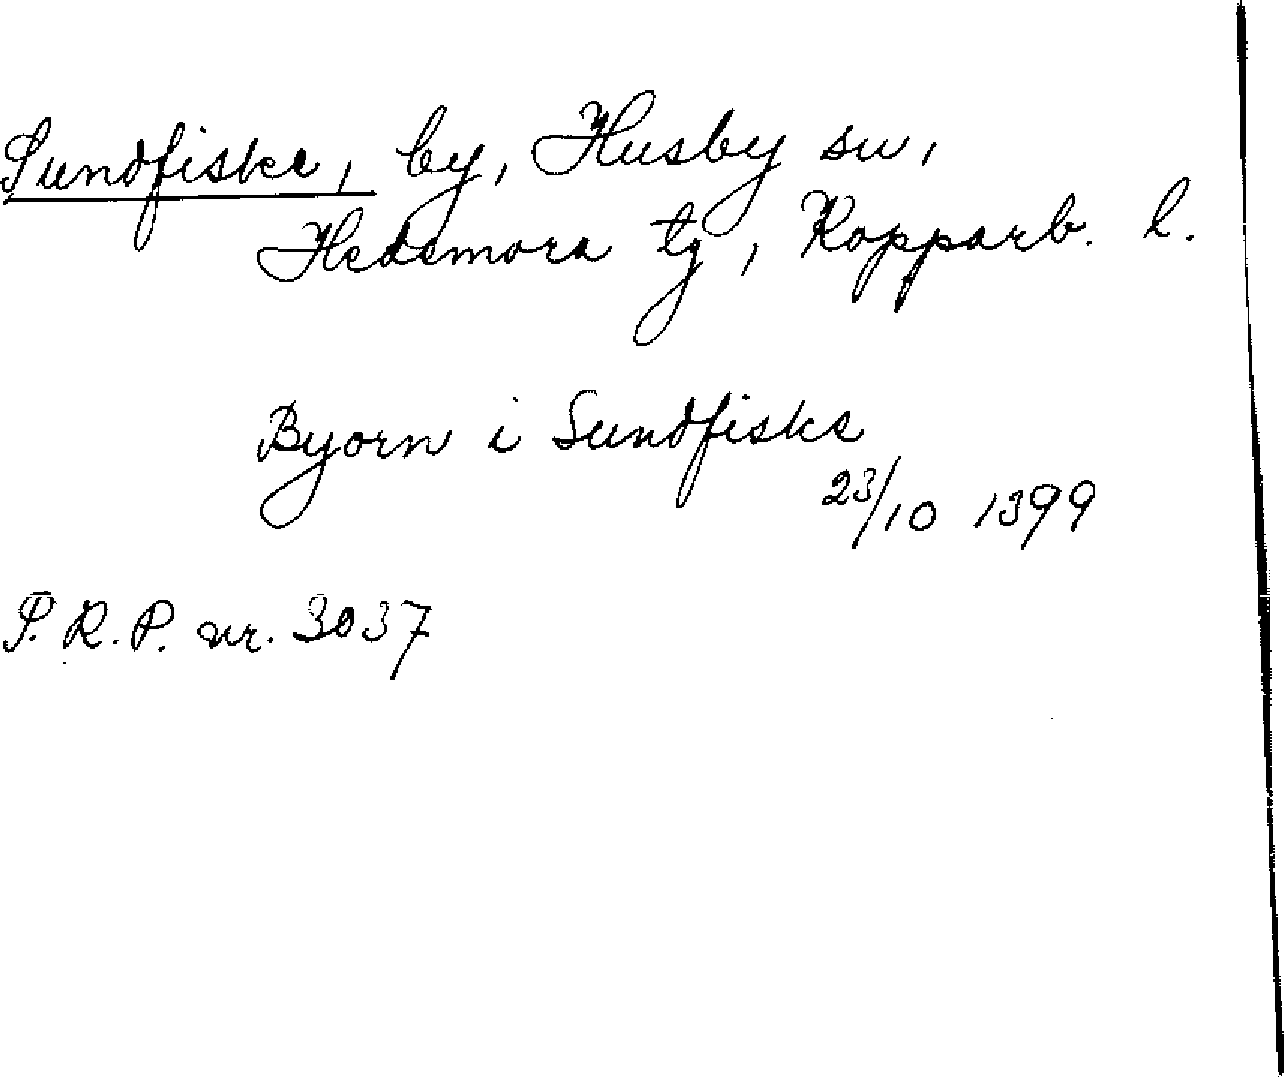 Sundfiske, by, Husby sn,
Hedemora tg, Kopparb. l.
Byorn i Sundfiske
23/10 1399
P. R. P. nr. 3037